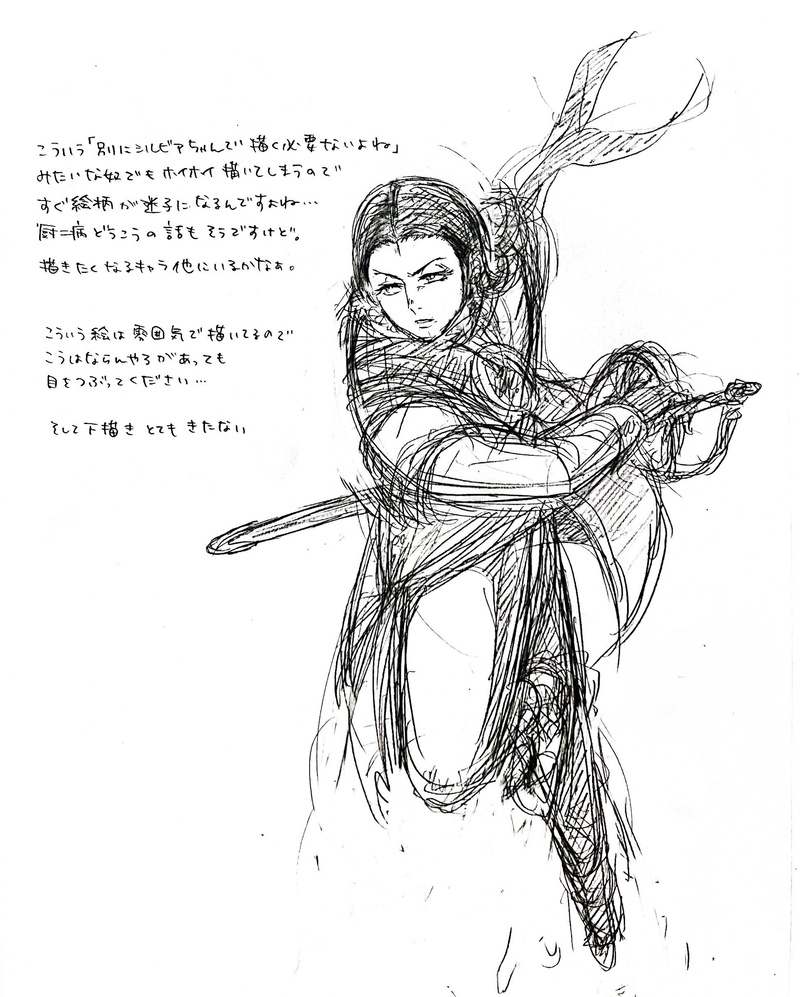 こういう「別にシルビアちゃんで描く必要ないよね」
みたいな奴でもホイホイ描いてしまうので
すぐ絵柄が迷子になるんですよね…
厨二病どうこうの話もそうですけど。
描きたくなるキャラ他にいるかなぁ。
こういう絵は雰囲気で描いてるので
こうはならんやろがあっても
目をつぶってください…
そして下描きとてもきたない